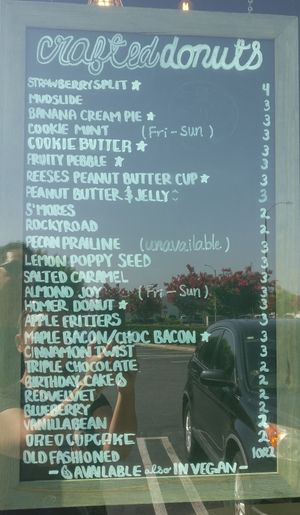 crafted donuts
STRAWBERRY SPLIT ★ 4
MUDSLIDE 3
BANANA CREAM PIE ★ 3
COOKIE MINT (Fri-Sun) 3
COOKIE BUTTER ★ 3
FRUITY PEBBLE ★ 3
REESES PEANUT BUTTER CUP ★ 3
PEANUT BUTTER & JELLY 3
S'MORES 2
ROCKYROAD 2
PECAN PRAILINE (unavailable) 3
LEMON POPPY SEED
SALTED CARAMEL
ALMOND JOY (Fri-Sun)
HOMER DONUT ★
APPLE FRITTERS
MAPLE BACON/CHOC BACON ★ 3
CINNAMON TWIST
TRIPLE CHOCOLATE 2
BIRTHDAY CAKE 2
RED VELVET 2
BLUEBERRY 2
VANILLA BEAN 2
OREO CUPCAKE 2
OLD FASHIONED 1 OR 2
- AVAILABLE also IN VEGAN -